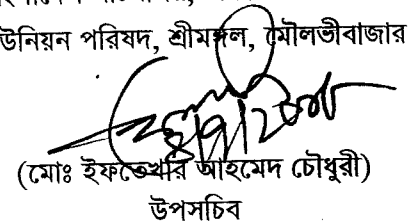 উনিয়ন পরিষদ, শ্রীমঙ্গল, মৌলভীবাজার
(মোঃ ইফতেখার আহমেদ চৌধুরী)
উপসচিব